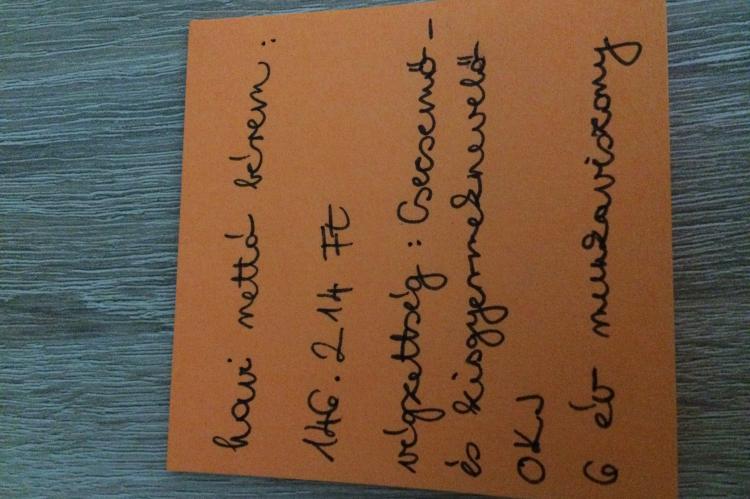 havi nettó bérem:
146.214 Ft
végzettség: Csecsemő-
és kisgyermeknevelő
OKJ
6 év munkaviszony